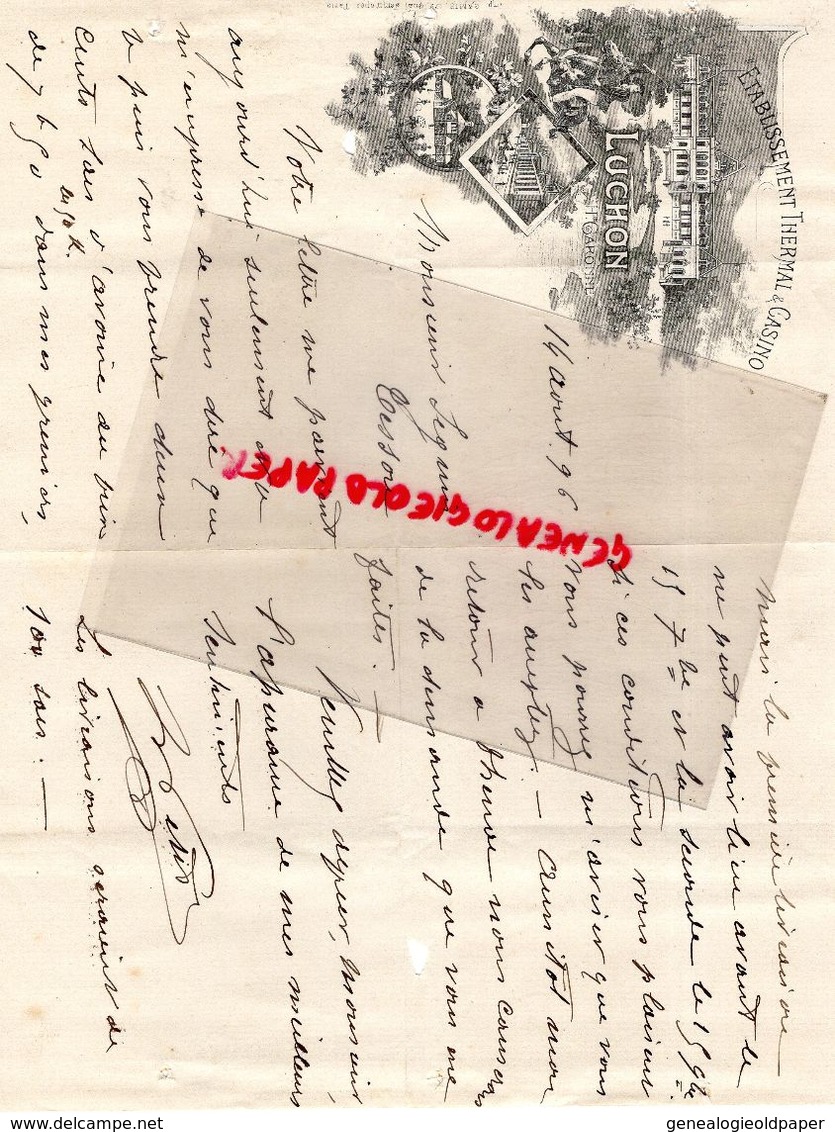 ETABLISSEMENT THERMAL & CASINO
LUCHON
HTE GARONNE
14 aout 96
Monsieur
Votre lettre me parvient
aujourd'hui seulement et je
m'empresse de vous dire que
je puis vous prendre deux
cents sacs d'avoine au prix
de 7 f 50 dans mes greniers,
les 50 k.
mais la première livraison
ne peut avoir lieu avant le
15 7bre et la seconde le 15 9bre
Si ces conditions vous plaisent
vous pouvez m'aviser que vous
les acceptez. — Aussitôt mon
retour à nous causerons
de la demande que vous me
faites. —
Veuillez agréer, Monsieur,
l'assurance de mes meilleurs
sentiments
Les livraisons seraient de
100 sacs. —
GENEALOGIE OLD PAPER
delcampe.net
genealogieoldpaper